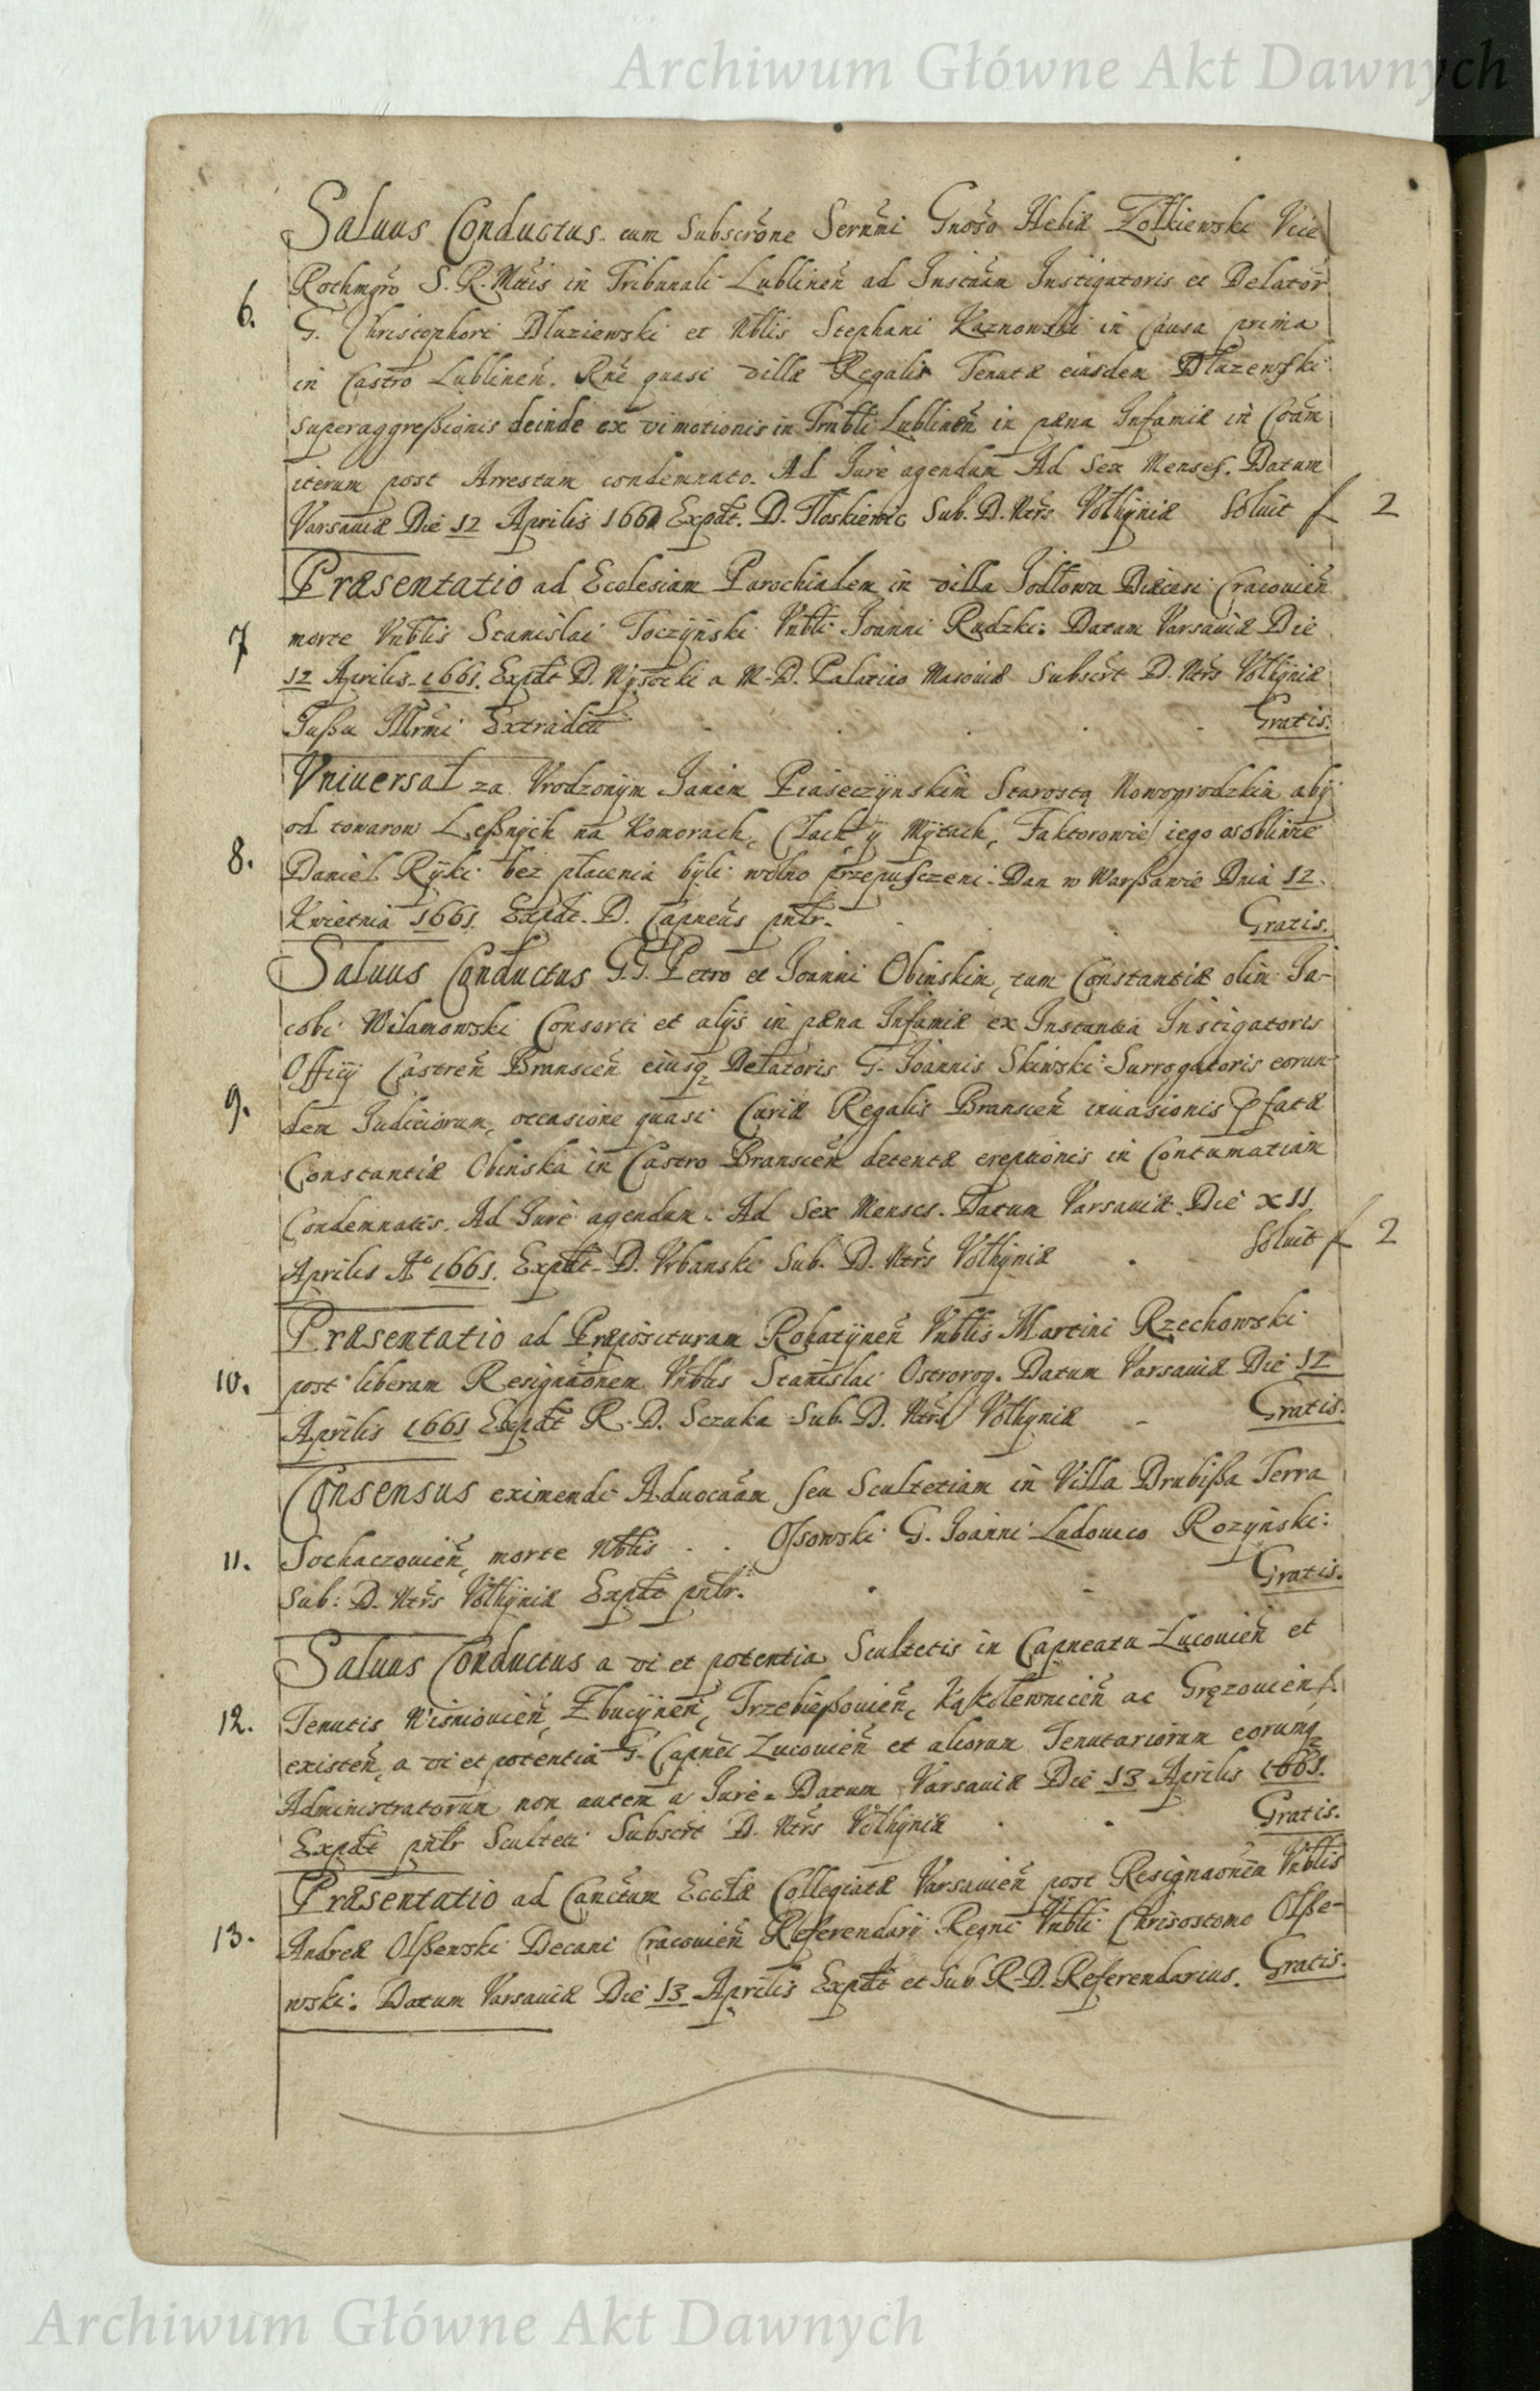 Archiwum Główne Akt Dawnych
Saluus Conductus cum Subscrõne Sernmi Gnoso Heliæ Zołkiewski Vice
Rothmgro S. R. Mttis in Tribunali Lublineñ ad Instãm Instigatoris et Delator
6. G. Christophori Dłuziewski et Nblis Stephani Kaznowski in Causa prima
in Castro Lublineñ. Rne quasi villæ Regalis Tenutæ eiusdem Dłuzewski
superaggreßionis deinde ex vi motionis in Trnbli Lublineñ in pæna Infamiæ in Coãm
iterum post Arrestum condemnato. Ad Iure agendum Ad Sex Menses. Datum
Varsauiæ Die 12 Aprilis 1661 Expdt. D. Floskiewic Sub. D. Ntrs Vołhyniæ Soluit f 2
Præsentatio ad Ecclesiam Parochialem in villa Jodłowa Diæcesi Cracouieñ
7 morte Vnblis Stanislai Toczyński Vnbli Joanni Rudzki. Datum Varsauiæ Die
12 Aprilis 1661. Expdt D. Wysocki a M. D. Palatino Masouiæ Subscrt D. Ntrs Vołhyniæ
Iußu Illrmi Extradit Gratis.
Vniuersał za Vrodzonym Janem Piaseczynskim Starostą Nowogrodzkim aby
od towarow Leßnych na Komorach, Cłach y Mytach, Faktorowie iego osobliwie
8. Daniel Ryki bez płacenia byli wolno przepusczeni. Dan w Warßawie Dnia 12.
Kwietnia 1661. Expdt. D. Capneus pntr. Gratis.
Saluus Conductus G.G. Petro et Joanni Obinskim, tum Constantiæ olim Ja-
cobi Wilamowski Consorti et alys in pæna Infamiæ ex Instantia Instigatoris
Officy Castreñ Branscieñ eiusq Delatoris G. Joannis Skiwski Surrogatoris eorun-
9. dem Iudiciorum, occasione quasi Curiæ Regalis Branscieñ inuasionis pfatæ
Constantiæ Obinska in Castro Branscieñ detentæ ereptionis in Contumatiam
Condemnatis. Ad Iure agendum. Ad Sex Menses. Datum Varsauiæ Die XII
Aprilis Aº 1661. Expdt. D. Vrbanski Sub. D. Ntrs Vołhyniæ Soluit f 2
Præsentatio ad Præposituram Rohatyneñ Vnblis Martini Rzechowski
10. post liberam Resignãonem Vnblis Stanislai Ostrorog. Datum Varsauiæ Die 12
Aprilis 1661 Expdt R. D. Sczuka Sub. D. Ntrs Vołhyniæ Gratis.
Consensus eximendi Aduocãam seu Scultetiam in Villa Drubißa Terra
11. Sochaczouieñ, morte Nblis . . Ossowski G. Joanni Ludouico Rozynski:
Sub: D. Ntrs Vołhyniæ Expdt pntr. Gratis.
Saluus Conductus a vi et potentia Scultetis in Capneatu Lucouieñ et
12. Tenutis Wisniouieñ, Zbucyneñ, Trzebießouieñ, Kąkolewnicieñ ac Gręzouiens.
existeñ, a vi et potentia G. Capnei Lucouieñ et aliorum Tenutariorum eorumq
Administratorum non autem a Iure. Datum Varsauiæ Die 13 Aprilis 1661.
Expdt pntr Sculteti Subscrt D. Ntrs Vołhyniæ Gratis.
Præsentatio ad Canctum Ecclæ Collegiatæ Varsauieñ post Resignaonem Vnblis
13. Andreæ Olßewski Decani Cracouieñ Referendary Regni Vnbli Chrisostomo Olße-
wski. Datum Varsauiæ Die 13 Aprilis Expdt et Sub. R. D. Referendarius. Gratis.
Archiwum Główne Akt Dawnych